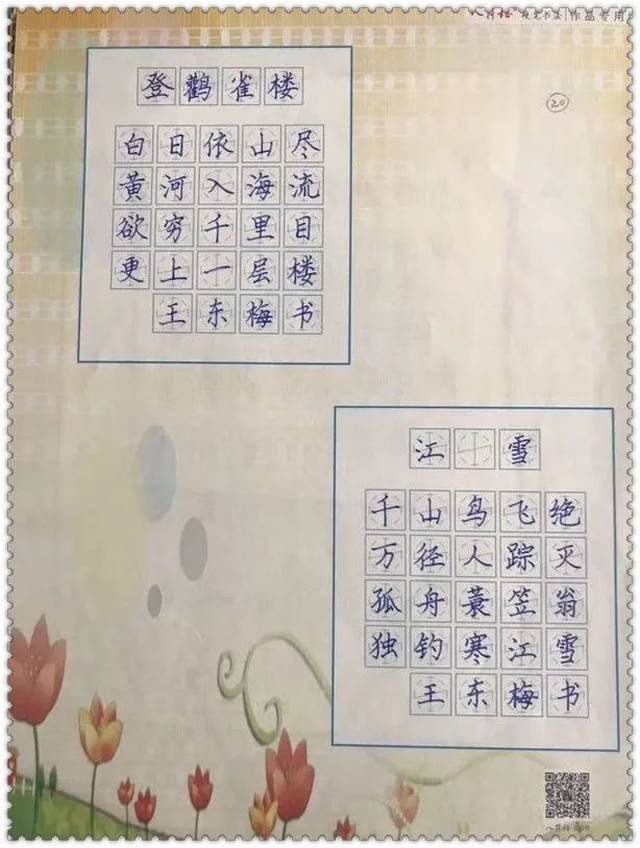 作品专用
20
登鹳雀楼
白日依山尽
黄河入海流
欲穷千里目
更上一层楼
王东梅书
江雪
千山鸟飞绝
万径人踪灭
孤舟蓑笠翁
独钓寒江雪
王东梅书